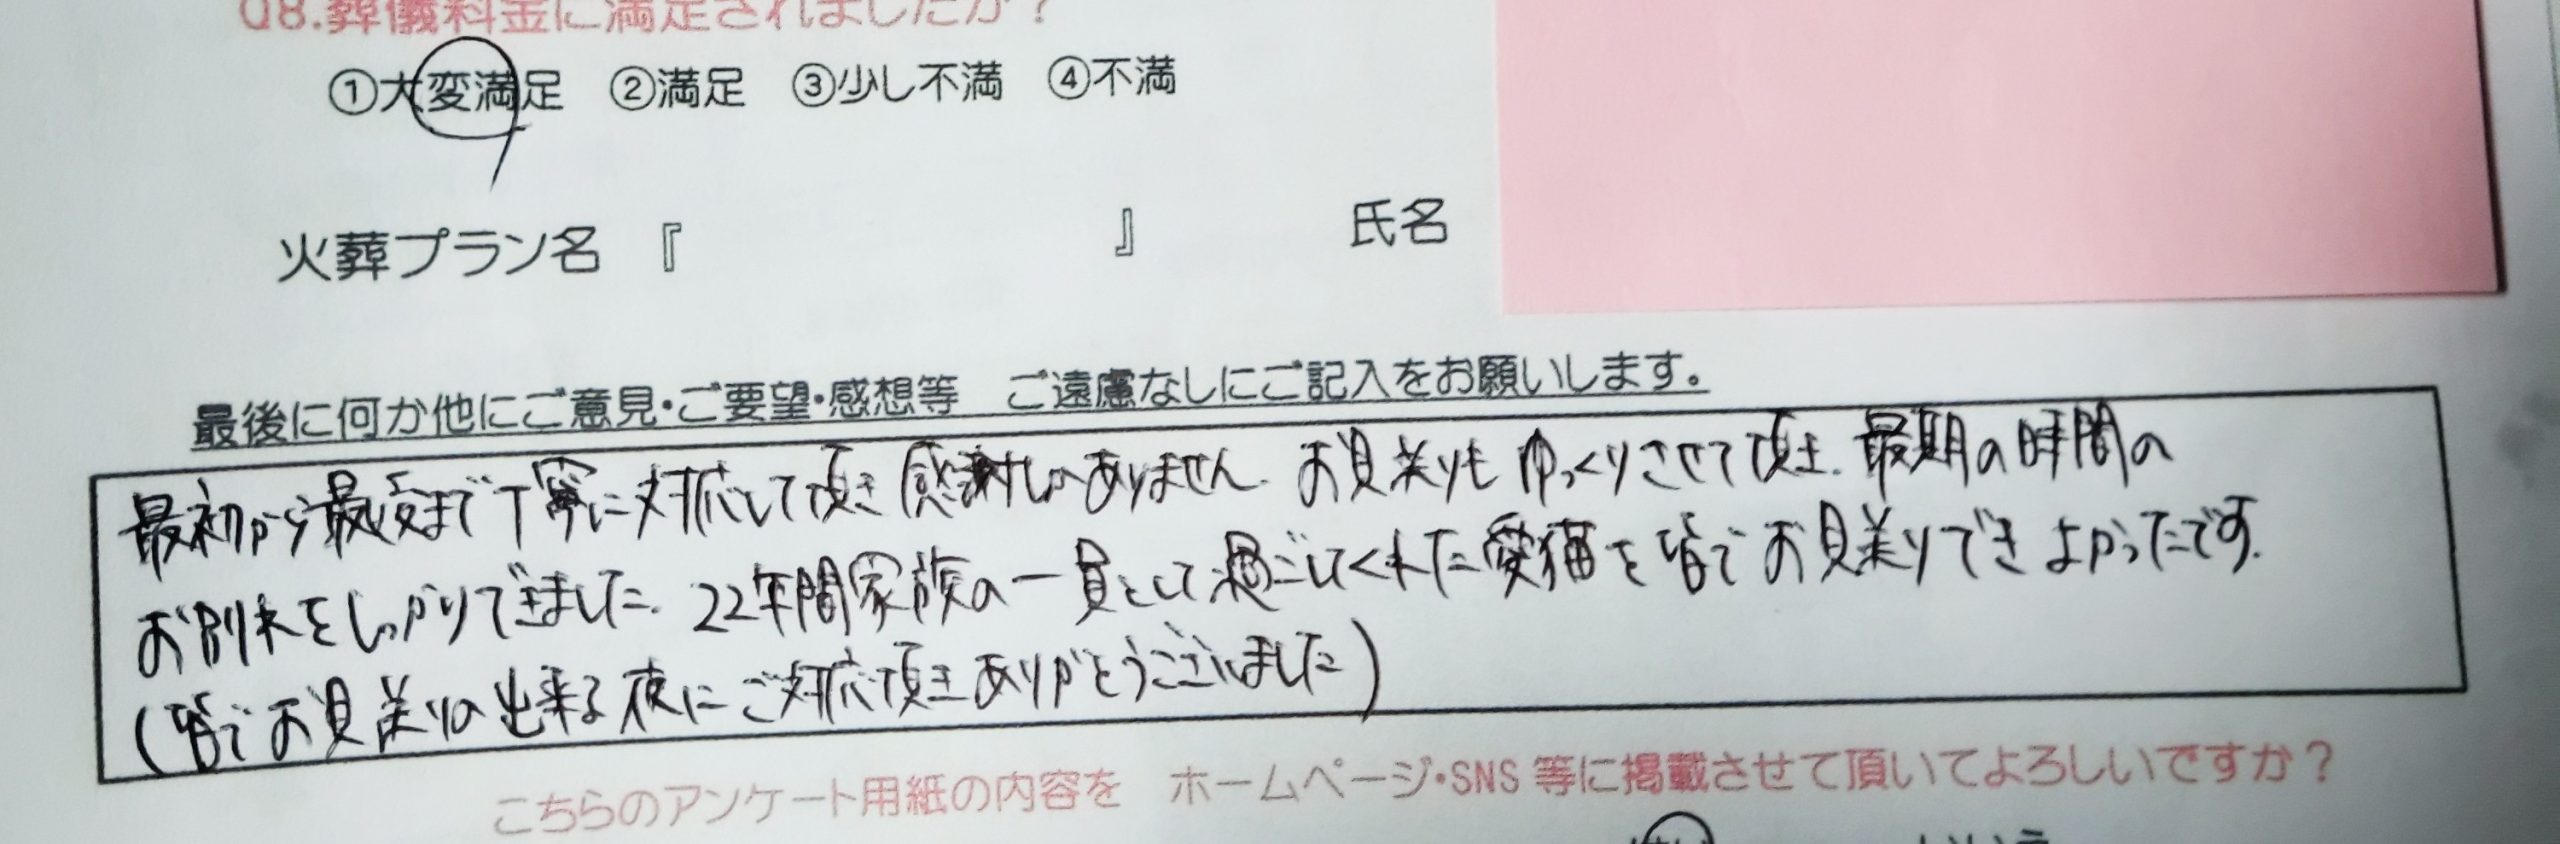 Q8.葬儀料金に満足されましたか？
①大変満足　②満足　③少し不満　④不満
火葬プラン名『　　　』　氏名
最後に何か他にご意見・ご要望・感想等　ご遠慮なしにご記入をお願いします。
最初から最後まで丁寧に対応して頂き感謝しかありません。お見送りもゆっくりさせて頂き、最期の時間の
お別れをしっかりできました。22年間家族の一員として過ごしてくれた愛猫を皆でお見送りできよかったです。
(皆でお見送りの出来る夜にご対応頂きありがとうございました)
こちらのアンケート用紙の内容を　ホームページ・SNS等に掲載させて頂いてよろしいですか？